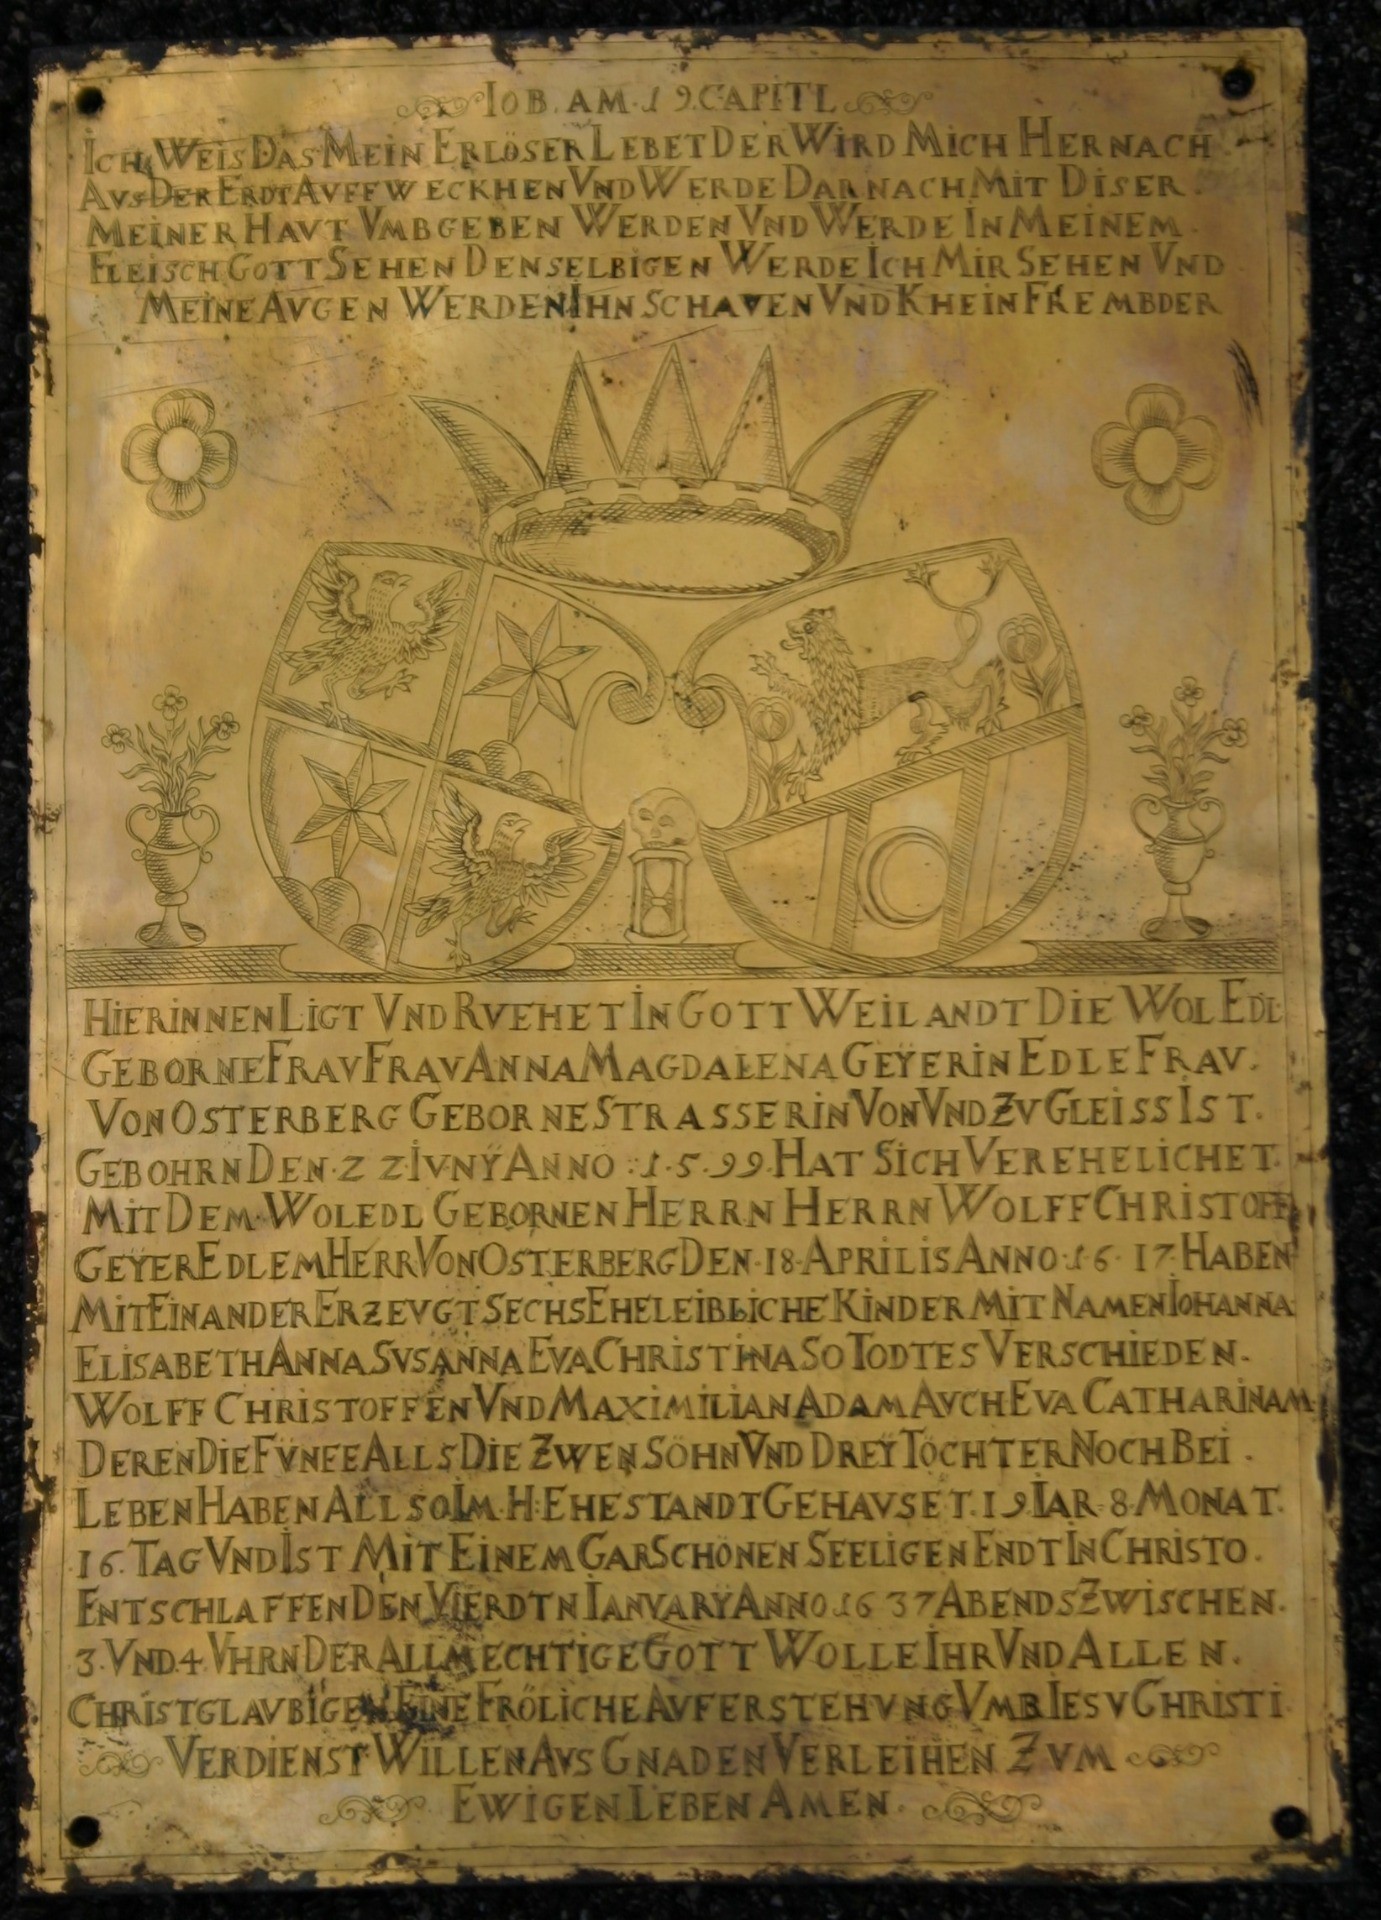 IOB. AM. 19. CAPITL
ICH WEIS DAS MEIN ERLÖSER LEBET DER WIRD MICH HERNACH
AVS DER ERDT AVFFWECKHEN VND WERDE DARNACH MIT DISER.
MEINER HAVT VMBGEBEN WERDEN VND WERDE IN MEINEM.
FLEISCH GOTT SEHEN DENSELBIGEN WERDE ICH MIR SEHEN VND
MEINE AVGEN WERDEN IHN SCHAVEN VND KHEIN FREMBDER
HIERINNEN LIGT VND RVEHET IN GOTT WEILANDT DIE WOL EDL
GEBORNE FRAV FRAV ANNA MAGDALENA GEŸERIN EDLE FRAV.
VON OSTERBERG GEBORNE STRASSERIN VON VND ZV GLEISS IST.
GEBOHRN DEN. 22 IVNŸ ANNO : 1.5.99. HAT SICH VEREHELICHET.
MIT DEM WOLEDL GEBORNEN HERRN HERRN WOLFF CHRISTOFF
GEŸER EDLEM HERR VON OSTERBERG DEN. 18. APRILIS ANNO. 16 17. HABEN
MIT EINANDER ERZEVGT SECHS EHELEIBLICHE KINDER MIT NAMEN IOHANNA
ELISABETH ANNA SVSANNA EVA CHRISTINA SO TODTES VERSCHIEDEN.
WOLFF CHRISTOFFEN VND MAXIMILIAN ADAM AVCH EVA CATHARINAM
DEREN DIE FVNFE ALLS DIE ZWEN SÖHN VND DREŸ TÖCHTER NOCH BEI.
LEBEN HABEN ALLSO IM. H: EHESTANDT GEHAVSET. 19. IAR. 8. MONAT.
16. TAG VND IST MIT EINEM GAR SCHÖNEN SEELIGEN ENDT IN CHRISTO.
ENTSCHLAFFEN DEN VIERDTN IANVARŸ ANNO. 16 37 ABENDS ZWISCHEN.
3. VND. 4. VHRN DER ALLMECHTIGE GOTT WOLLE IHR VND ALLEN.
CHRISTGLAVBIGEN EINE FRÖLICHE AVFERSTEHVNG VMB IESV CHRISTI
VERDIENST WILLEN AVS GNADEN VERLEIHEN ZVM
EWIGEN LEBEN AMEN.